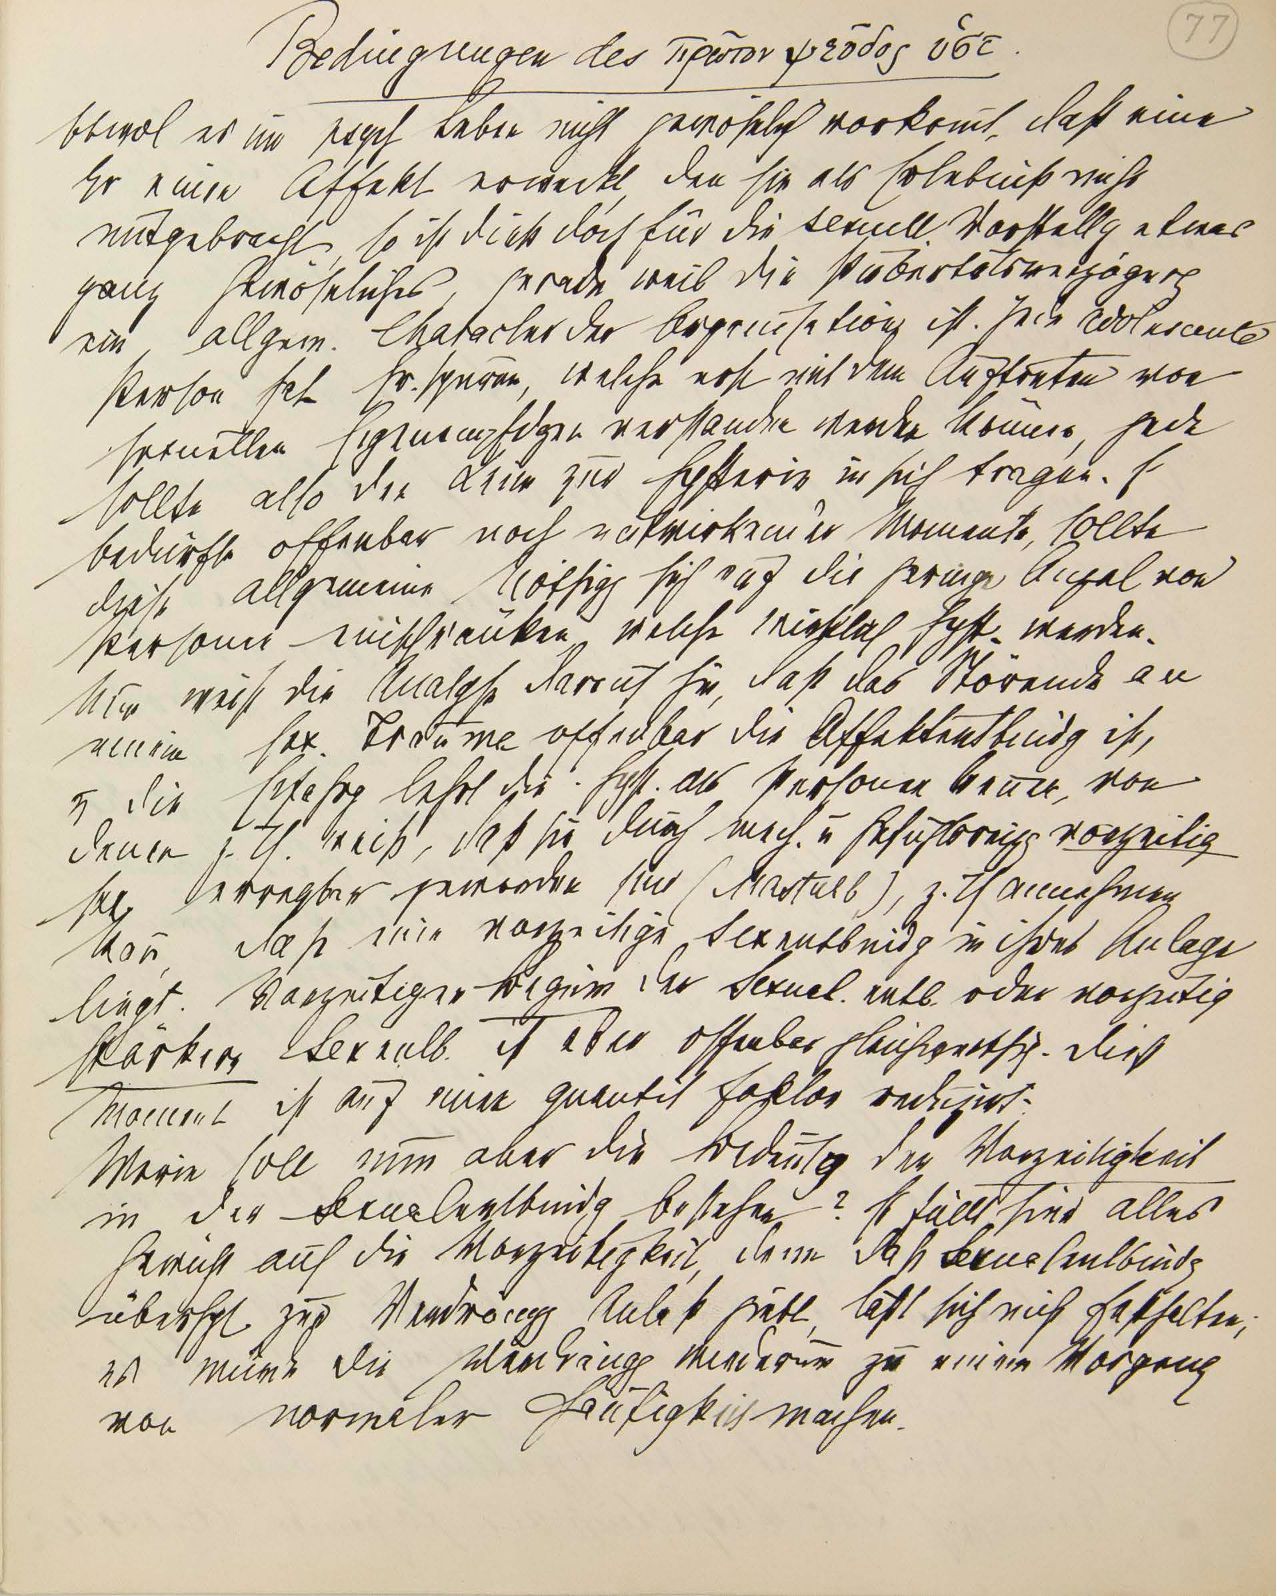 77
Bedingungen des πρῶτον ψεῦδος ὑστ.
Obwol es im psych Leben nicht gewöhnlich vorkomt, daß eine
Er einen Affekt erweckt, den sie als Erlebniß nicht
mitgebracht, so ist dieß doch für die sexuell. Vorstellg etwas
ganz Gewöhnliches, gerade weil die Pubertätsverzögerg
ein allgem. Charakter der Organisation ist. Jede adolescente
Person hat Er.spuren, welche erst mit dem Auftreten von
sexuellen Eigenempfdgen verstanden werden können, jede
sollte also den Keim zur Hysterie in sich tragen. Es
bedürfte offenbar noch mitwirkender Momente, sollte
diese allgemeine Nöthigg sich auf die geringe Anzal von
Personen einschränken, welche wirklich hyst. werden.
Nun weist die Analyse darauf hin, daß das Störende an
einem sex. Trauma offenbar die Affektentbindg ist,
u die Erfahrg lehrt die Hyst. als Personen kennen, von
denen z. Th. weiß, daß sie durch mech. u Gefühlsreizg vorzeitig
sex. erregbar geworden sind (Masturb), z. Th annehmen
kann, daß eine vorzeitige Sexentbindg in ihrer Anlage
liegt. Vorzeitiger Beginn der Sexual. entb. oder vorzeitig
stärkere Sexentb. ist aber offenbar gleichwerthig. Dieß
Moment ist auf einen quantit Faktor reduzirt.
Worin soll nun aber die Bedeutg der Vorzeitigkeit
in der Sexualentbindg bestehen? Es fällt hier alles
Gewicht auf die Vorzeitigkeit, denn daß Sexualentbindg
überhpt zur Verdrängg Anlaß giebt, läßt sich nicht festhalten;
es würde die Verdrängg wiederum zu einem Vorgang
von normaler Häufigkeit machen.